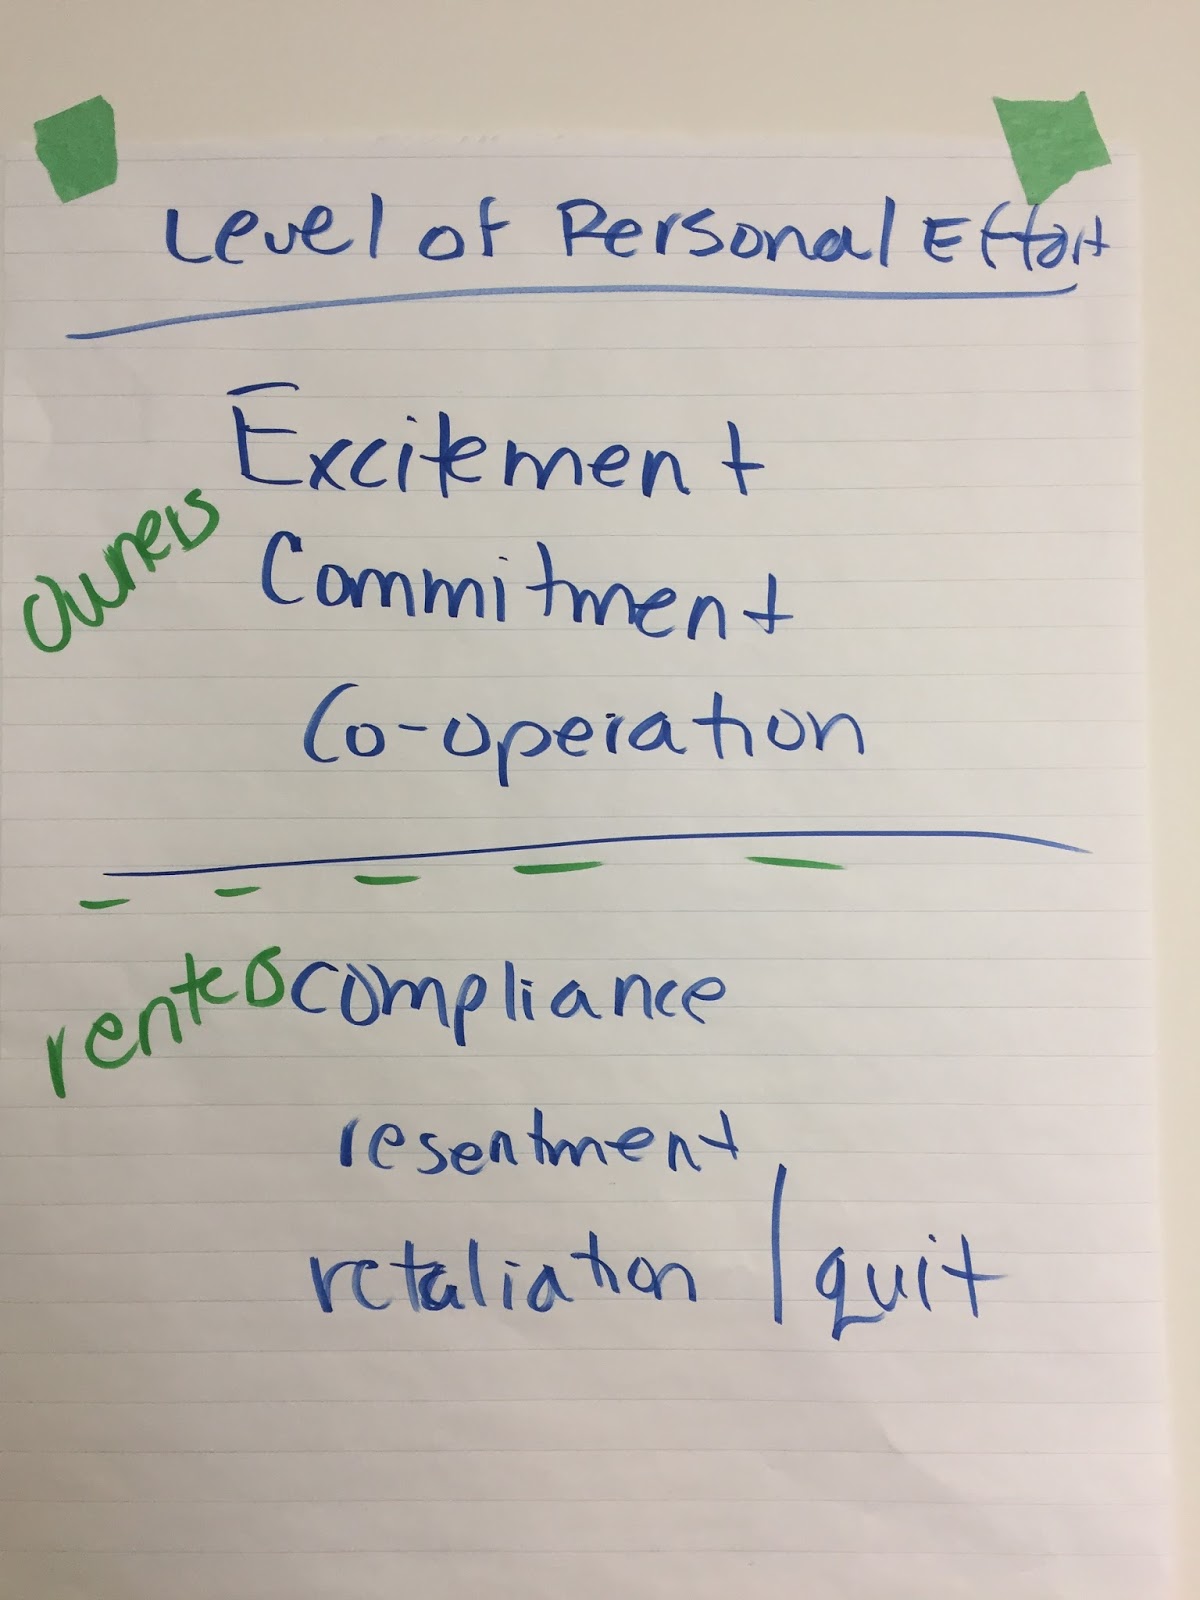 Level of Personal Effort
Excitement
owners
Commitment
Co-operation
renters compliance
resentment
retaliation / quit